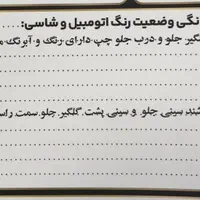 نگی وضعیت رنگ اتومبیل و شاسی:
گیر جلو و درب جلو چپ دارای رنگ و آبرنگ م
شند سینی جلو و سینی پشت گلگیر جلو سمت راس